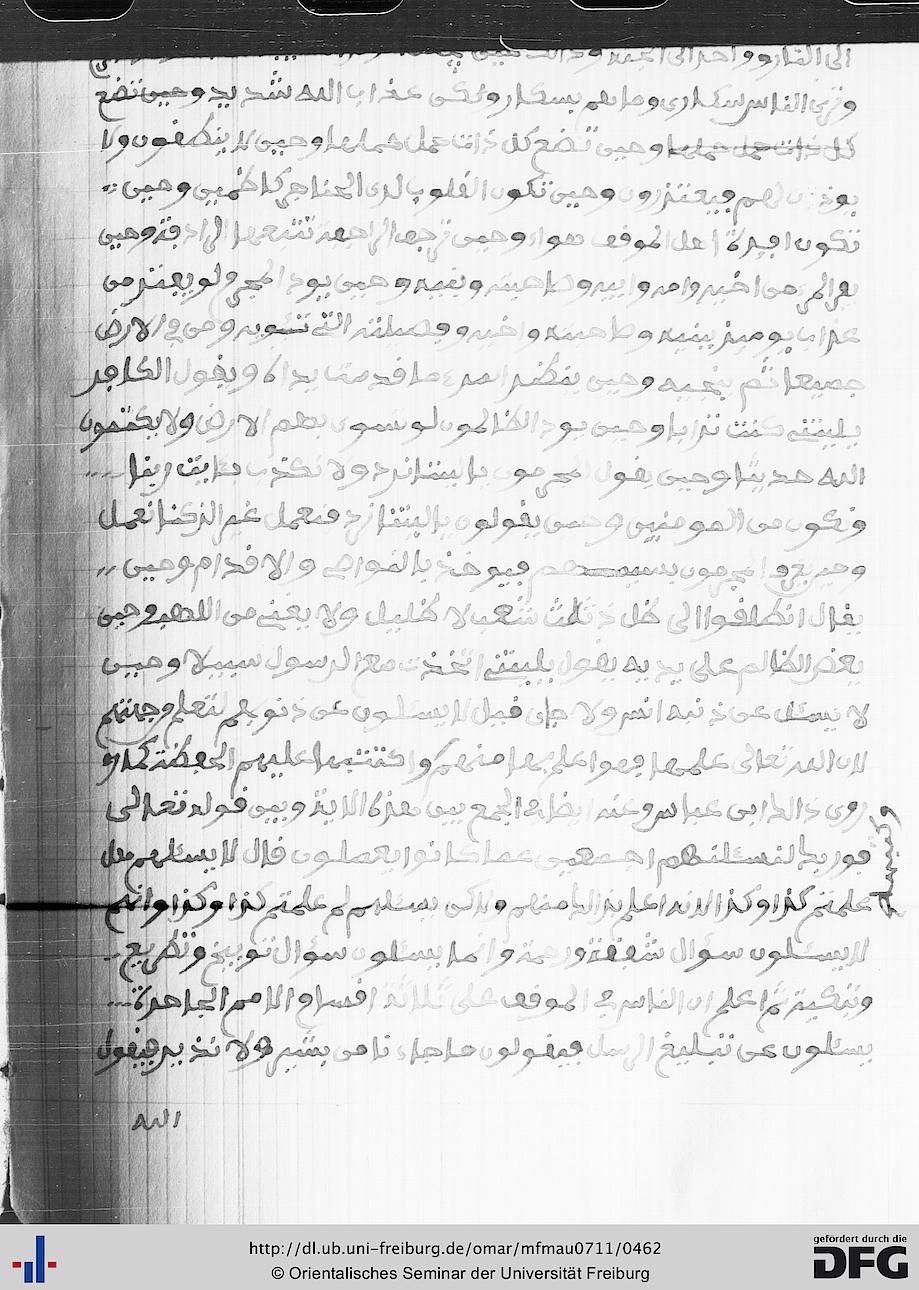 الى النار وواحد الى الجنة وذالك حين
وترى الناس سكارى وما هم بسكارى ولكن عذاب الله شديد وحين تضع
كل ذات حمل حملها وحين تضع كل ذات حمل حملها وحين لا ينطقون ولا
يوذن لهم فيعتذرون وحين تكون القلوب لدى الحناجر كاظمين وحين
تكون افئدة اهل الموقف هواء وحين ترجف الراجفة تتبعها الرادفة وحين
يفر المرء من اخيه وامه وابيه وصاحبته وبنيه وحين يود المجرم لو يفتدى من
عذاب يوميذ ببنيه وصاحبته واخيه وفصيلته التى تئويه ومن في الارض
جميعا ثم ينجيه وحين ينظر المرء ما قدمت يداه ويقول الكافر
يليتنى كنت ترابا وحين يود الظالمون لو تسوى بهم الارض ولا يكتمون
الله حديثا وحين يقول المجرمون ياليتنا نرد ولا نكذب بئايت ربنا
ونكون من المومنين وحين يقولون ياليتنا نرد فنعمل غير الذى كنا نعمل
وحين يعرف المجرمون بسيمهم فيوخذ بالنواصى والاقدام وحين
يقال انطلقوا الى ظل ذى ثلث شعب لا ظليل ولا يغنى من اللهب وحين
يعض الظالم على يديه يقول يليتنى اتخذت مع الرسول سبيلا وحين
لا يسئل عن ذنبه انس ولا جان قيل لا يسئلون عن ذنوبهم لتعلم وجهتهم
لان الله تعالى علمها فهو اعلم بها منهم وكتبتها عليهم الحفظة كما
روى ذالك ابن عباس وعنه ايضا في الجمع بين هذه الاية وبين قوله تعالى
فوربك لنسئلنهم اجمعين عما كانوا يعملون قال لا يسئلهم هل
عملتم كذا وكذا لانه اعلم بذالك منهم ولاكن يسئلهم لم عملتم كذا وكذا وانهم
لا يسئلون سؤال شفقة ورحمة وانما يسئلون سؤال توبيخ وتقريع
وتبكيت ثم اعلم ان الناس في الموقف على ثلاثة اقسام الامم الجاحدة
يسئلون عن تبليغ الرسل فيقولون ما جاءنا من بشير ولا نذير فيقول
الله
http://dl.ub.uni-freiburg.de/omar/mfmau0711/0462
© Orientalisches Seminar der Universität Freiburg
gefördert durch die
DFG